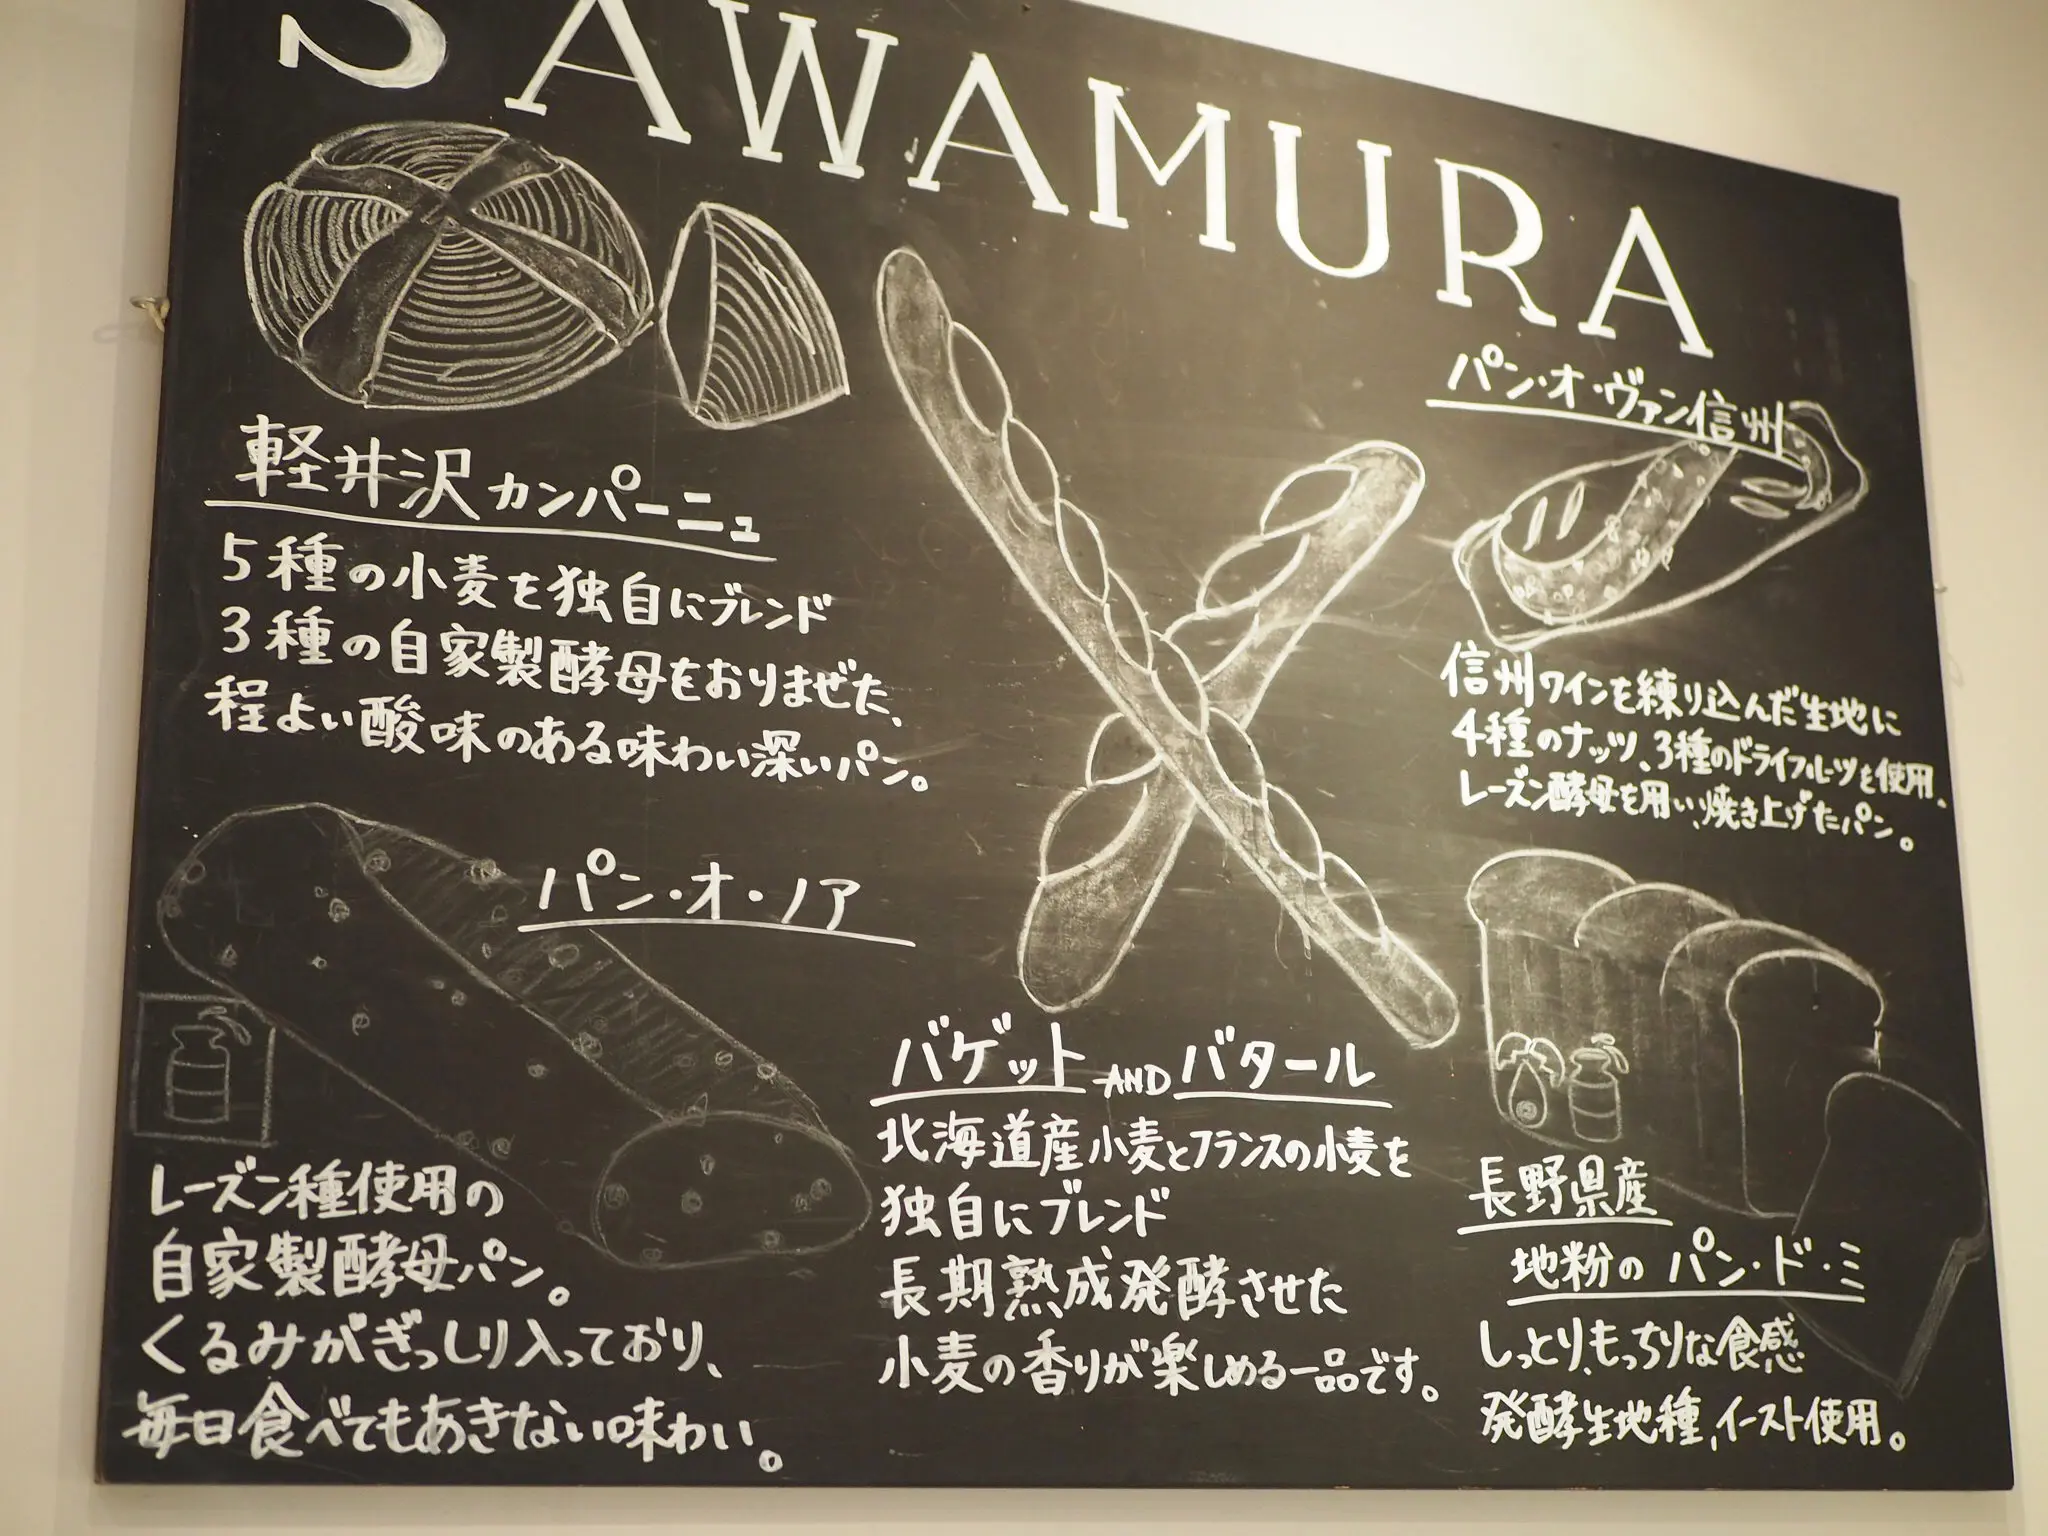 SAWAMURA
軽井沢カンパーニュ
5種の小麦を独自にブレンド
3種の自家製酵母をおりまぜた、
程よい酸味のある味わい深いパン。
パン・オ・ノア
レーズン種使用の
自家製酵母パン。
くるみがぎっしり入っており、
毎日食べてもあきない味わい。
バゲット AND バタール
北海道産小麦とフランスの小麦を
独自にブレンド
長期熟成発酵させた
小麦の香りが楽しめる一品です。
パン・オ・ヴァン信州
信州ワインを練り込んだ生地に
4種のナッツ、3種のドライフルーツを使用、
レーズン酵母を用い、焼き上げたパン。
長野県産
地粉の パン・ド・ミ
しっとり、もっちりな食感
発酵生地種、イースト使用。